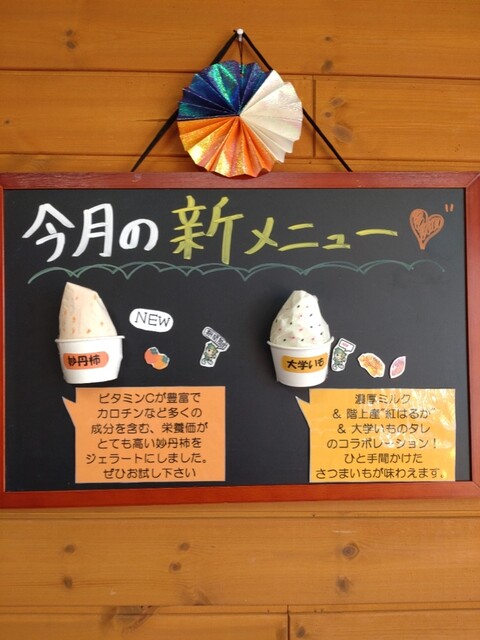 今月の新メニュー
NEW
妙丹柿
大学いも
ビタミンCが豊富で
カロチンなど多くの
成分を含む、栄養価が
とても高い妙丹柿を
ジェラートにしました。
ぜひお試し下さい
濃厚ミルク
& 階上産"紅はるか"
& 大学いものタレ
のコラボレーション！
ひと手間かけた
さつまいもが味わえます。